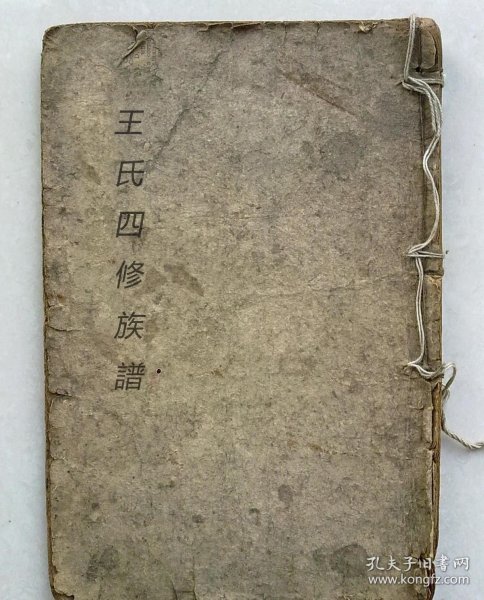 王氏四修族譜
孔夫子旧书网
www.kongfz.com